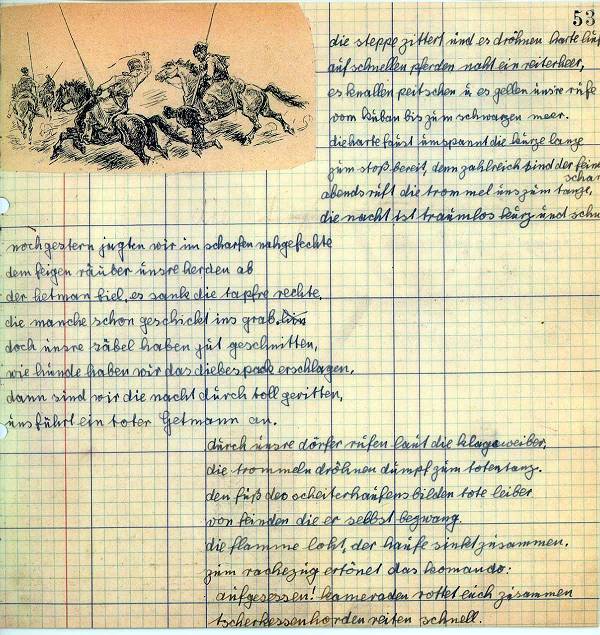 53
die steppe zittert und es dröhnen harte huf
auf schnellen pferden naht ein reiterheer,
es knallen peitschen u es gellen unsre rufe
vom kuban bis zum schwarzen meer.
die harte faust umspannt die kurze lanze
zum stoß bereit, denn zahlreich sind der feinde
schar
abends ruft die trommel uns zum tanze,
die nacht ist traumlos kurz und schw
noch gestern jagten wir im scharfen nahgefechte
dem feigen räuber unsre herden ab
der hetman fiel, es sank die tapfre rechte,
die manche schon geschickt ins grab.
doch unsre säbel haben gut geschnitten,
wie hunde haben wir das diebespack erschlagen,
dann sind wir die nacht durch toll geritten,
uns führt ein toter Hetmann an.
durch unsre dörfer rufen laut die klageweiber,
die trommeln dröhnen dumpf zum totentanz.
den fuß des scheiterhaufens bilden tote leiber
von feinden die er selbst bezwang.
die flamme loht, der haufe sinkt zusammen.
zum rachezug ertönet das komando:
aufgesessen! kameraden rottet euch zusammen
tscherkessenhorden reiten schnell.